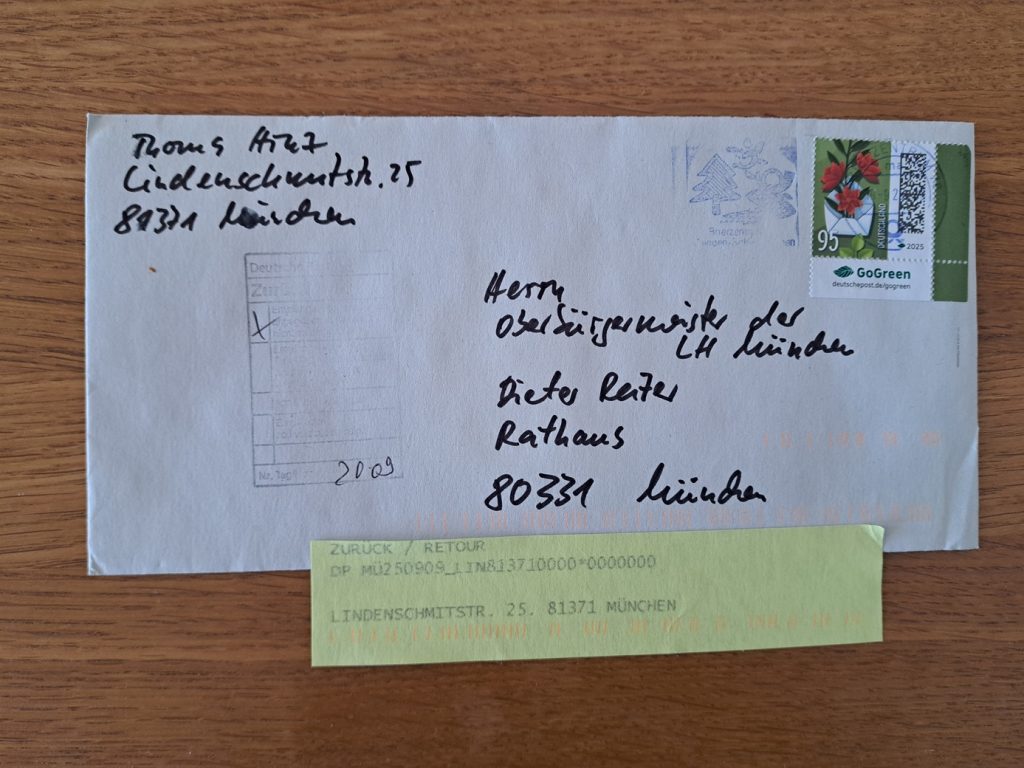 Thomas Hinz
Lindenschmitstr. 25
81371 München
Deutsche
Zurück
X
Nr. Tag
2009
Briefzentrum
95
DEUTSCHLAND
2025
GoGreen
deutschepost.de/gogreen
Herrn
Oberbürgermeister der
LH München
Dieter Reiter
Rathaus
80331 München
ZURÜCK / RETOUR
DP MÜ250909_LIN813710000*0000000
LINDENSCHMITSTR. 25. 81371 MÜNCHEN